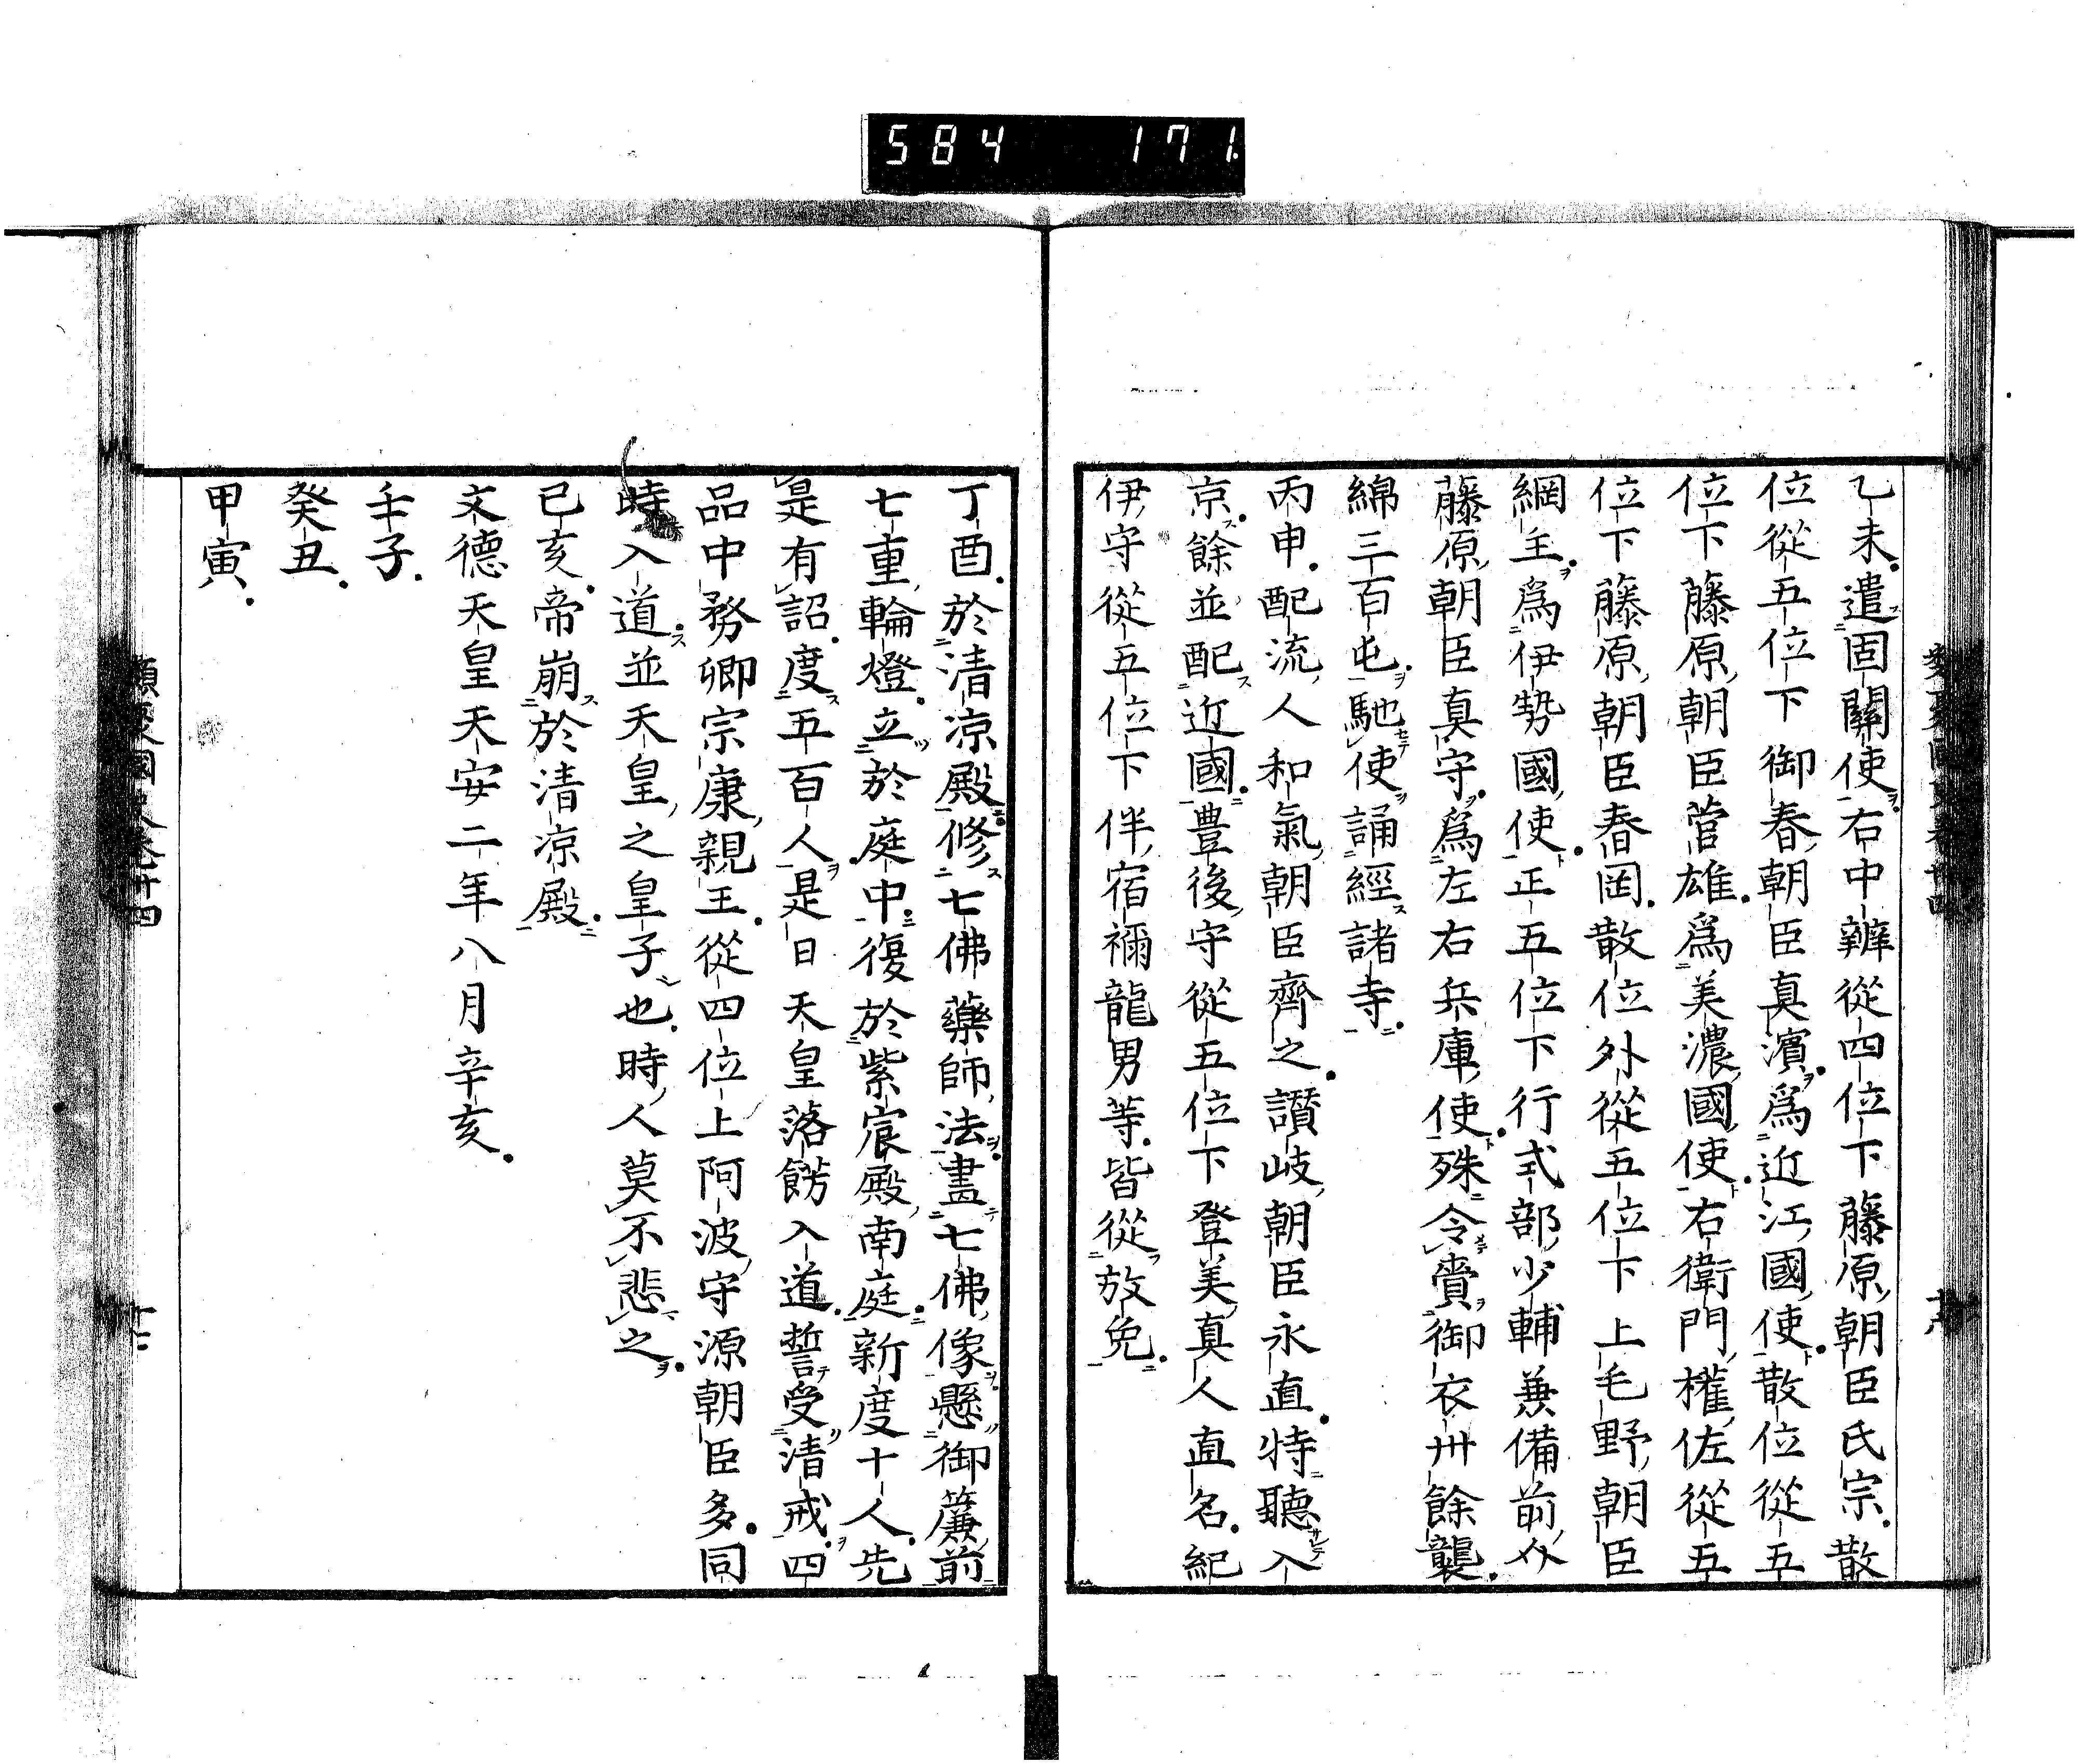 584 171
乙未。遣固關使右中辨從四位下藤原朝臣氏宗。散
位從五位下御春朝臣真濱。爲近江國使。散位從五
位下藤原朝臣菅雄。爲美濃國使。右衛門權佐從五
位下藤原朝臣春岡。散位外從五位下上毛野朝臣
綱主。爲伊勢國使。正五位下行式部少輔兼備前介
藤原朝臣真守。爲左右兵庫使。殊令賣御衣卅餘襲。
綿三百屯。馳使誦經諸寺。
丙申。配流人和氣朝臣齊之。讃岐朝臣永直。特聽入
京。餘並配近國。豊後守從五位下登美真人直名。紀
伊守從五位下伴宿禰龍男等。皆從放免。
丁酉。於清凉殿修七佛藥師法。畫七佛像。懸御簾前
七重輪燈。立於庭中。復於紫宸殿南庭。新度十人。先
是有詔。度五百人。是日天皇落餝入道。誓受清戒。四
品中務卿宗康親王。從四位上阿波守源朝臣多。同
時入道。並天皇之皇子也。時人莫不悲之。
已亥。帝崩於清凉殿。
文德天皇天安二年八月辛亥。
壬子。
癸丑。
甲寅。
類聚國史卷卅四